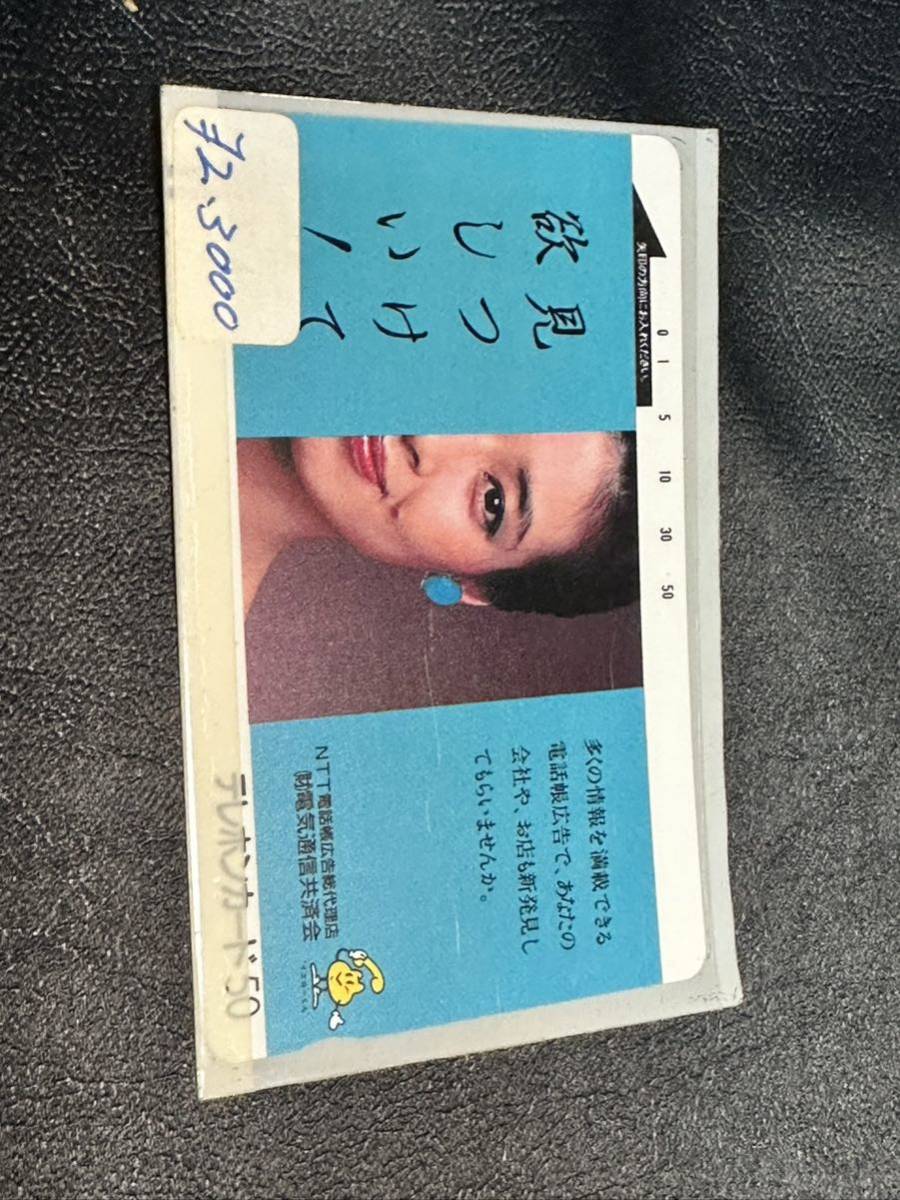 矢印の方向にお入れください。
0 1 5 10 30 50
見つけて
欲しい!
多くの情報を満載できる
電話帳広告で、あなたの
会社や、お店も新発見し
てもらいませんか。
NTT電話帳広告総代理店
(財)電気通信共済会
テレホンカード50